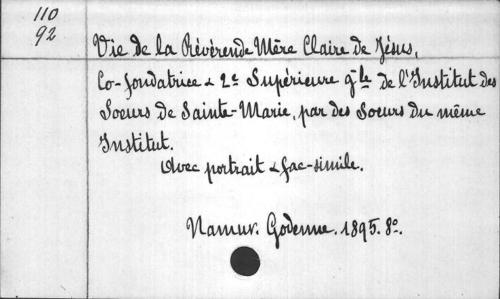 110
92
Vie de la Révérende Mère Claire de Jésus,
Co-fondatrice & 2e Supérieure gle de l'Institut des
Soeurs de Sainte-Marie, par des Soeurs du même
Institut.
Avec portrait & fac-simile.
Namur. Godenne. 1895. 8o.